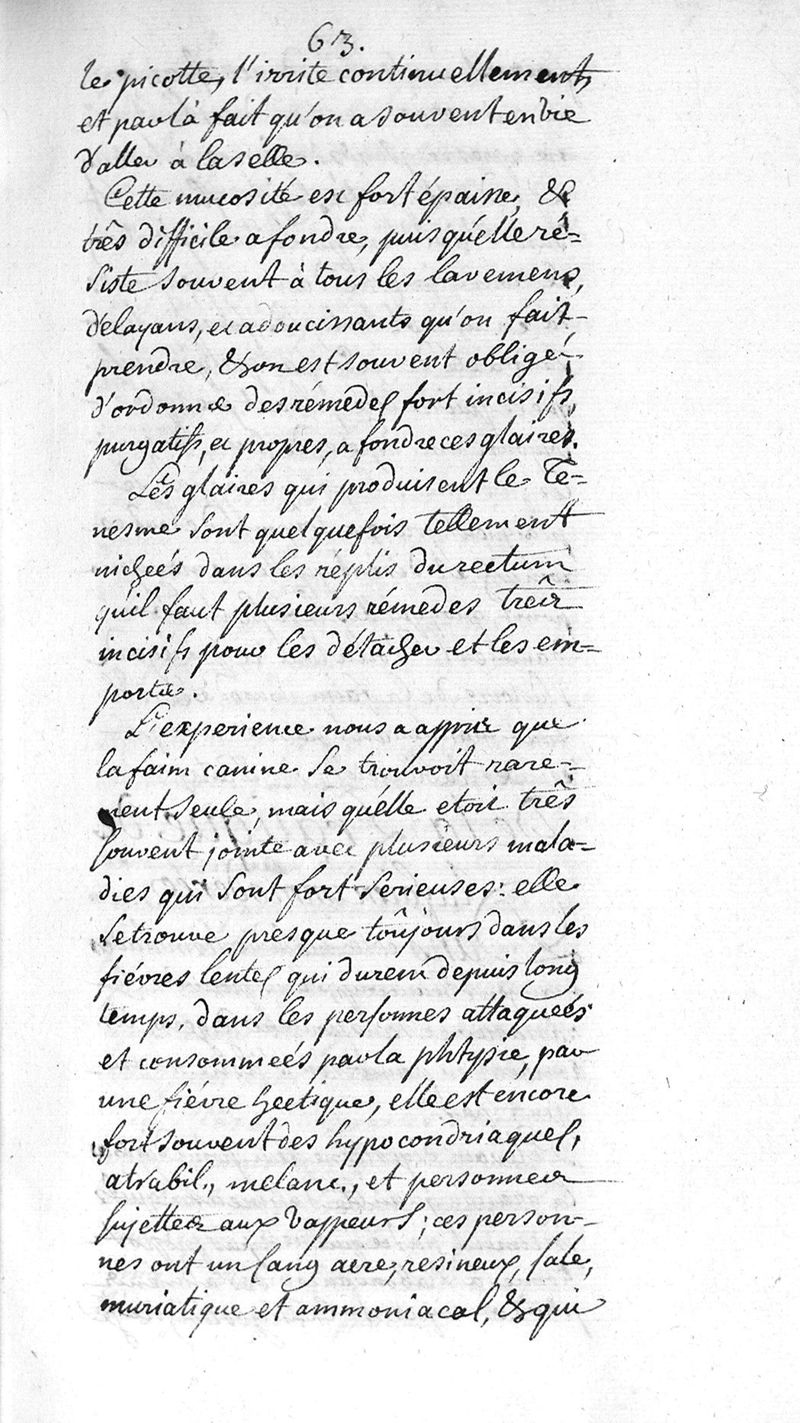 63.
le picotte, l'irrite continuellement,
et par là fait qu'on a souvent envie
d'aller à la selle.
Cette mucosité est fort épaisse, &
três difficile a fondre, puis qu'élle ré=
siste souvent à tous les lavemens,
délayans, et adoucissants qu'on fait
prendre, & on est souvent obligé
d'ordonner des rémedes fort incisifs,
purgatifs, et propres, a fondre ces glaires.
Lés glaires qui produisent le Te=
nesme sont quelquefois tellement
nicheés dans les réplis du rectum
qu'il faut plusieurs rémedes treîs
incisifs pour les détacher et les em=
porter.
L'experience nous a appris que
la faim canine se trouvoit rare=
ment seule, mais qu'élle etoit três
souvent jointe avec plusieurs mala=
dies qui sont fort serieuses: elle
se trouve presque toûjours dans les
fiévres lentes qui durent depuis long
temps, dans les personnes attaqueés
et consommeés par la phtysie, par
une fiévre hectique, elle est encore
fort souvent des hypocondriaques,
atrabil., melanc., et personnes
sujettes aux vappeurs; ces person=
nes ont un sang acre, resineux, sale,
muriatique et ammoniacal, & qui